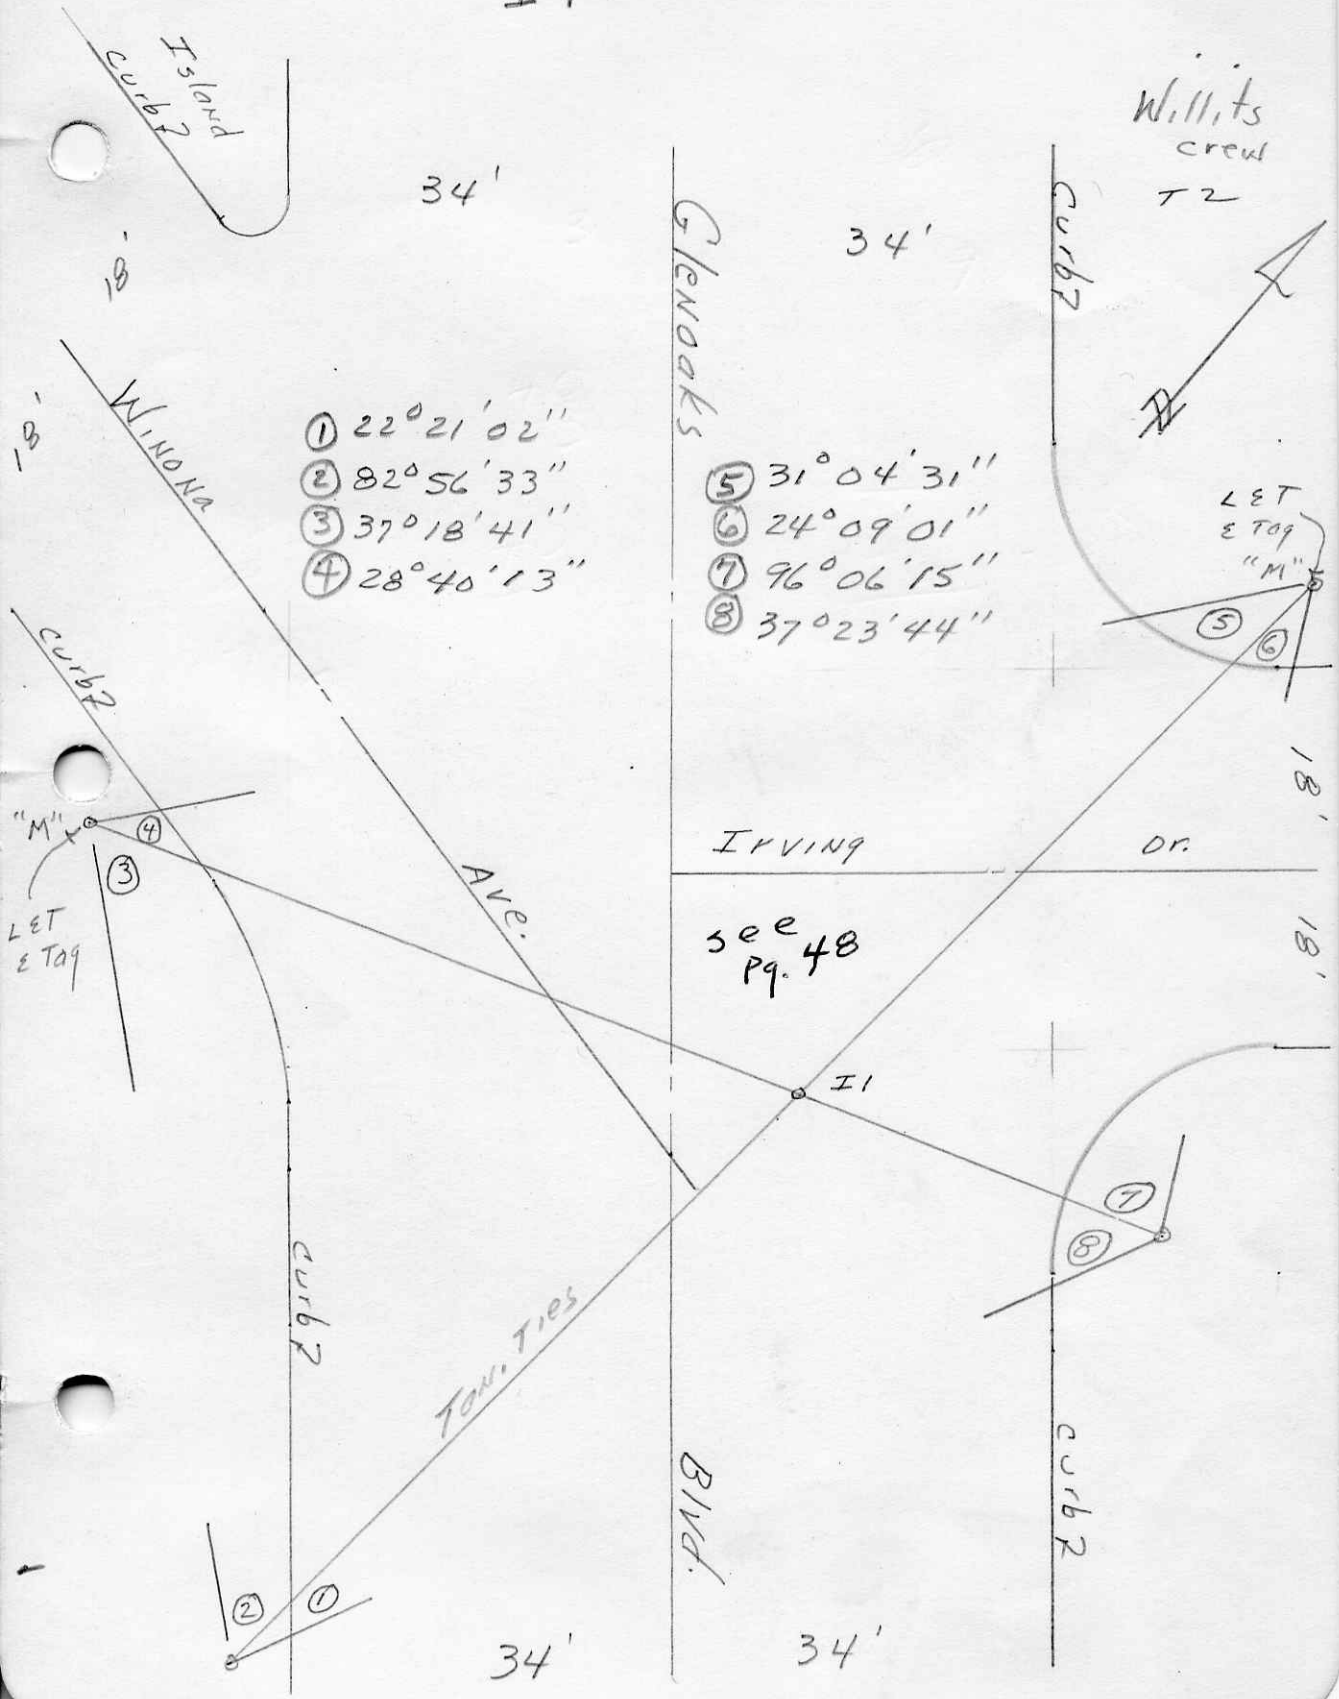 Island
curb7
Willits
crew
T2
34'
34'
18'
18'
Glenoaks
curb7
Winona
① 22°21'02"
② 82°56'33"
③ 37°18'41"
④ 28°40'13"
⑤ 31°04'31"
⑥ 24°09'01"
⑦ 96°06'15"
⑧ 37°23'44"
L&T
& Tag
"M"
⑤
⑥
curb7
"M"
④
③
L&T
& Tag
Ave.
Irving Dr.
18'
18'
see
Pg. 48
I1
⑦
⑧
curb7
Ton. Ties
Blvd.
curb7
②
①
34'
34'